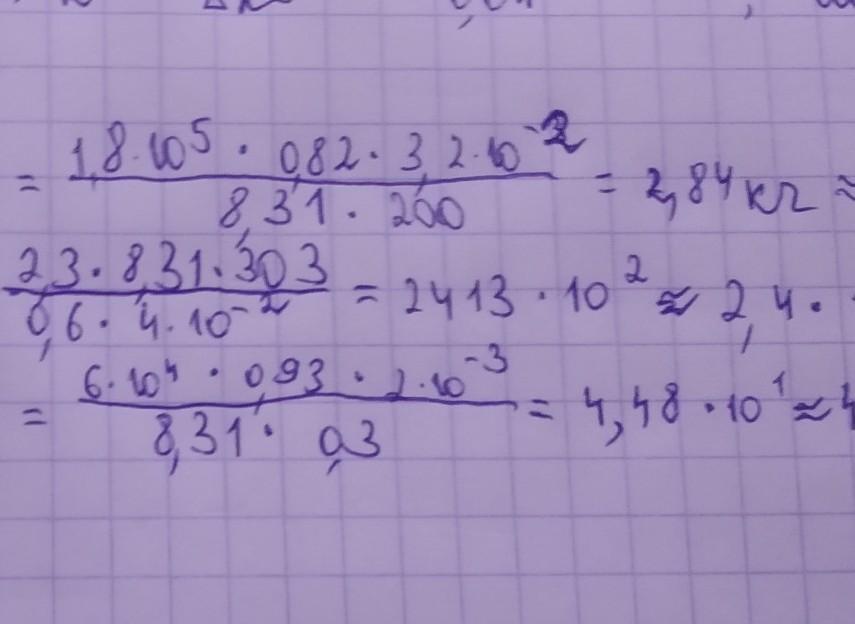 = 1,8·10⁵ · 0,82 · 3,2·10⁻² / 8,31 · 200 = 2,84 кг ≈
2,3 · 8,31 · 303 / 0,6 · 4·10⁻² = 2413 · 10² ≈ 2,4 ·
= 6·10⁴ · 0,93 · 2·10⁻³ / 8,31 · 0,3 = 4,48 · 10¹ ≈ 4